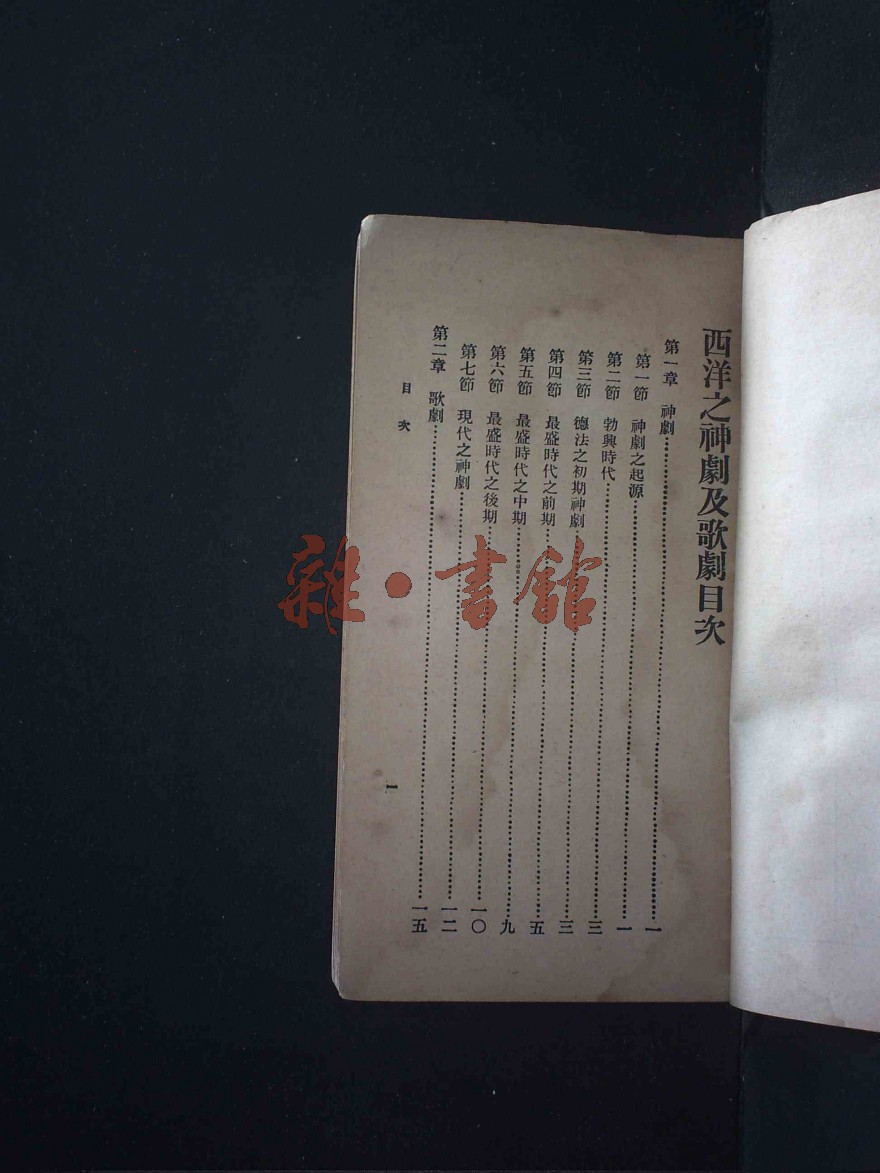 西洋之神劇及歌劇目次
第一章　神劇……一
第一節　神劇之起源……一
第二節　勃興時代……三
第三節　德法之初期神劇……三
第四節　最盛時代之前期……五
第五節　最盛時代之中期……九
第六節　最盛時代之後期……一〇
第七節　現代之神劇……一二
第二章　歌劇……一五
目次
一
雜·書館